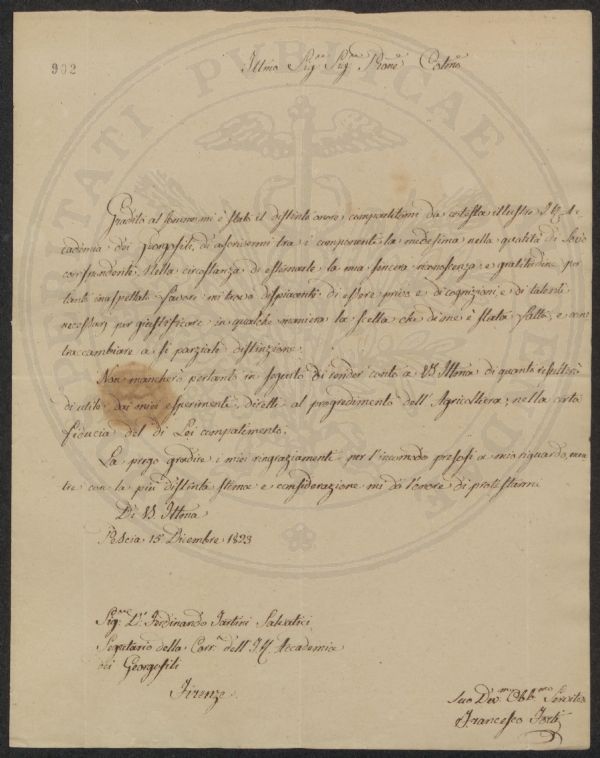 902
Illmo Sigre Sigre Prone Colmo
Gradito al sommo mi è stato il distinto onore compartitomi da cotesta illustre I. e R. Ac-
cademia dei Georgofili, di ascrivermi tra i componenti la medesima nella qualità di Socio
corrispondente. Nella circostanza di esternarle la mia sincera riconoscenza e gratitudine per
tanto inaspettato favore mi trovo dispiacente di essere privo e di cognizioni e di talenti
necessarj per giustificare in qualche maniera la scelta che di me è stata fatta, e con-
traccambiare a sì parziali distinzione.
Non mancherò pertanto in seguito di render conto a VS. Illma di quanto resulterà
di utile dai miei esperimenti diretti al progredimento dell'Agricoltura; nella certa
fiducia del di Lei compatimento.
La prego gradire i miei ringraziamenti per l'incomodo presosi a mio riguardo, men-
tre con la più distinta stima e considerazione mi do l'onore di protestarmi
Di VS. Illma
Pescia 15 Dicembre 1823
Sigre Dr. Ferdinando Tartini Salvatici
Segretario della Corr. dell'I. e R. Accademia
dei Georgofili
Firenze
Suo Devmo Obbmo Servitore
Francesco Forti
PUBLICAE